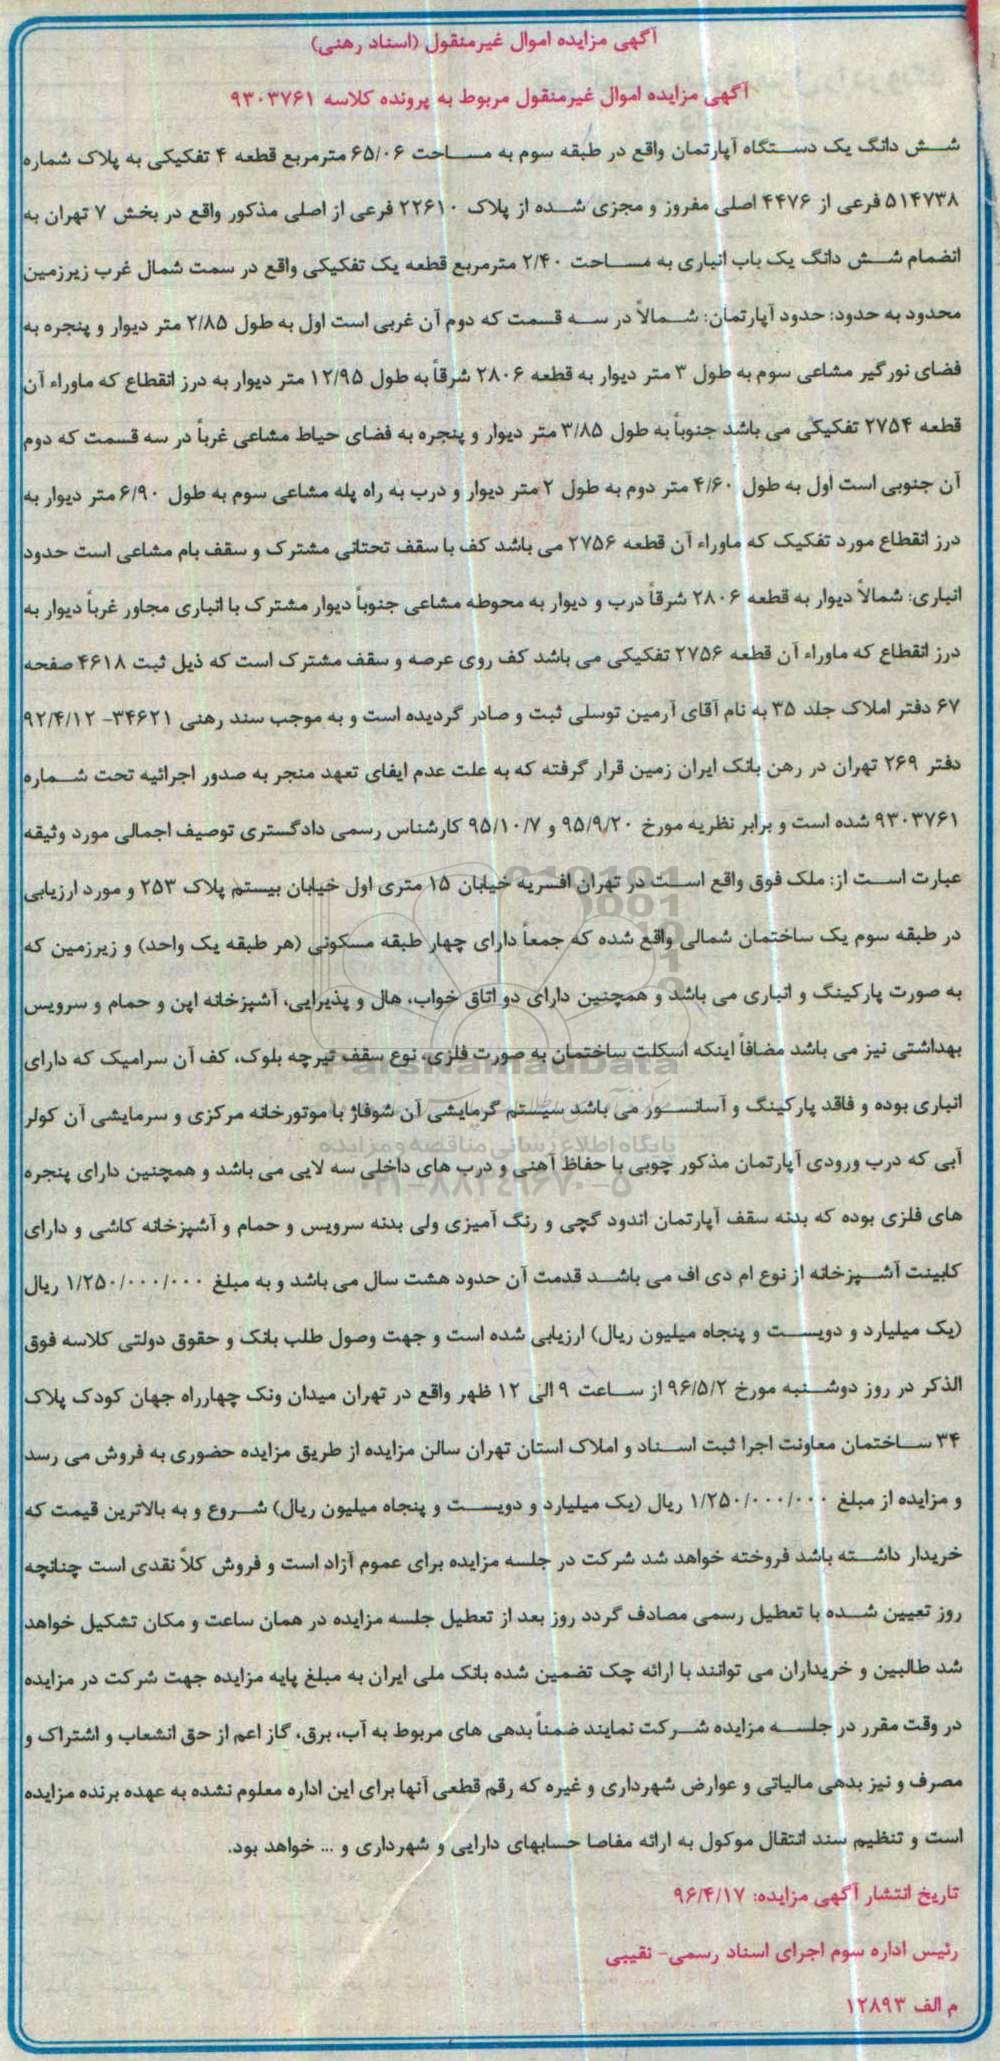 آگهی مزایده اموال غیرمنقول (اسناد رهنی)
آگهی مزایده اموال غیرمنقول مربوط به پرونده کلاسه ۹۳۰۳۷۶۱
شش دانگ یک دستگاه آپارتمان واقع در طبقه سوم به مساحت ۶۵/۰۶ مترمربع قطعه ۴ تفکیکی به پلاک شماره
۵۱۴۷۳۸ فرعی از ۴۴۷۶ اصلی مفروز و مجزی شده از پلاک ۲۲۶۱۰ فرعی از اصلی مذکور واقع در بخش ۷ تهران به
انضمام شش دانگ یک باب انباری به مساحت ۲/۴۰ مترمربع قطعه یک تفکیکی واقع در سمت شمال غرب زیرزمین
محدود به حدود: حدود آپارتمان: شمالاً در سه قسمت که دوم آن غربی است اول به طول ۲/۸۵ متر دیوار و پنجره به
فضای نورگیر مشاعی سوم به طول ۳ متر دیوار به قطعه ۲۸۰۶ شرقاً به طول ۱۲/۹۵ متر دیوار به درز انقطاع که ماوراء آن
قطعه ۲۷۵۴ تفکیکی می باشد جنوباً به طول ۳/۸۵ متر دیوار و پنجره به فضای حیاط مشاعی غرباً در سه قسمت که دوم
آن جنوبی است اول به طول ۴/۶۰ متر دوم به طول ۲ متر دیوار و درب به راه پله مشاعی سوم به طول ۶/۹۰ متر دیوار به
درز انقطاع مورد تفکیک که ماوراء آن قطعه ۲۷۵۶ می باشد کف با سقف تحتانی مشترک و سقف بام مشاعی است حدود
انباری: شمالاً دیوار به قطعه ۲۸۰۶ شرقاً درب و دیوار به محوطه مشاعی جنوباً دیوار مشترک با انباری مجاور غرباً دیوار به
درز انقطاع که ماوراء آن قطعه ۲۷۵۶ تفکیکی می باشد کف روی عرصه و سقف مشترک است که ذیل ثبت ۴۶۱۸ صفحه
۶۷ دفتر املاک جلد ۳۵ به نام آقای آرمین توسلی ثبت و صادر گردیده است و به موجب سند رهنی ۳۴۶۲۱- ۹۲/۴/۱۲
دفتر ۲۶۹ تهران در رهن بانک ایران زمین قرار گرفته که به علت عدم ایفای تعهد منجر به صدور اجرائیه تحت شماره
۹۳۰۳۷۶۱ شده است و برابر نظریه مورخ ۹۵/۹/۲۰ و ۹۵/۱۰/۷ کارشناس رسمی دادگستری توصیف اجمالی مورد وثیقه
عبارت است از: ملک فوق واقع است در تهران افسریه خیابان ۱۵ متری اول خیابان بیستم پلاک ۲۵۳ و مورد ارزیابی
در طبقه سوم یک ساختمان شمالی واقع شده که جمعاً دارای چهار طبقه مسکونی (هر طبقه یک واحد) و زیرزمین که
به صورت پارکینگ و انباری می باشد و همچنین دارای دو اتاق خواب، هال و پذیرایی، آشپزخانه اپن و حمام و سرویس
بهداشتی نیز می باشد مضافاً اینکه اسکلت ساختمان به صورت فلزی، نوع سقف تیرچه بلوک، کف آن سرامیک که دارای
انباری بوده و فاقد پارکینگ و آسانسور می باشد سیستم گرمایشی آن شوفاژ با موتورخانه مرکزی و سرمایشی آن کولر
آبی که درب ورودی آپارتمان مذکور چوبی با حفاظ آهنی و درب های داخلی سه لایی می باشد و همچنین دارای پنجره
های فلزی بوده که بدنه سقف آپارتمان اندود گچی و رنگ آمیزی ولی بدنه سرویس و حمام و آشپزخانه کاشی و دارای
کابینت آشپزخانه از نوع ام دی اف می باشد قدمت آن حدود هشت سال می باشد و به مبلغ ۱/۲۵۰/۰۰۰/۰۰۰ ریال
(یک میلیارد و دویست و پنجاه میلیون ریال) ارزیابی شده است و جهت وصول طلب بانک و حقوق دولتی کلاسه فوق
الذکر در روز دوشنبه مورخ ۹۶/۵/۲ از ساعت ۹ الی ۱۲ ظهر واقع در تهران میدان ونک چهارراه جهان کودک پلاک
۳۴ ساختمان معاونت اجرا ثبت اسناد و املاک استان تهران سالن مزایده از طریق مزایده حضوری به فروش می رسد
و مزایده از مبلغ ۱/۲۵۰/۰۰۰/۰۰۰ ریال (یک میلیارد و دویست و پنجاه میلیون ریال) شروع و به بالاترین قیمت که
خریدار داشته باشد فروخته خواهد شد شرکت در جلسه مزایده برای عموم آزاد است و فروش کلاً نقدی است چنانچه
روز تعیین شده با تعطیل رسمی مصادف گردد روز بعد از تعطیل جلسه مزایده در همان ساعت و مکان تشکیل خواهد
شد طالبین و خریداران می توانند با ارائه چک تضمین شده بانک ملی ایران به مبلغ پایه مزایده جهت شرکت در مزایده
در وقت مقرر در جلسه مزایده شرکت نمایند ضمناً بدهی های مربوط به آب، برق، گاز اعم از حق انشعاب و اشتراک و
مصرف و نیز بدهی مالیاتی و عوارض شهرداری و غیره که رقم قطعی آنها برای این اداره معلوم نشده به عهده برنده مزایده
است و تنظیم سند انتقال موکول به ارائه مفاصا حسابهای دارایی و شهرداری و ... خواهد بود.
تاریخ انتشار آگهی مزایده: ۹۶/۴/۱۷
رئیس اداره سوم اجرای اسناد رسمی- نقیبی
م الف ۱۲۸۹۳
ParsNamadData
پایگاه اطلاع رسانی مناقصه و مزایده
۰۲۱-۸۸۳۴۹۶۷۰-۵